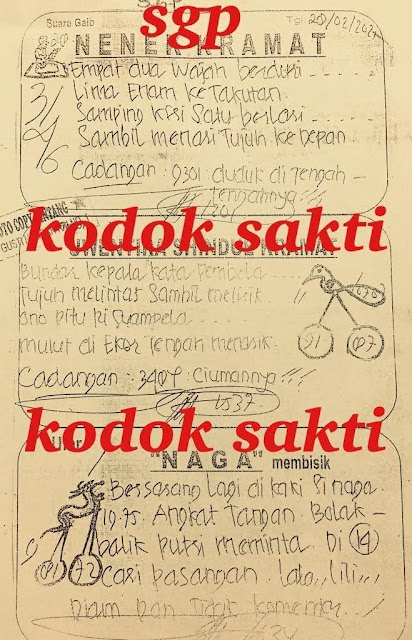 sgp
Suara Galo
Tgl 20/02/2021
NENEK KRAMAT
Empat dua wajah berduri ....
Lima Enam ketakutan
Samping kursi satu berlari ..
Sambil menari Tujuh kedepan
Cadangan : 9301 duduk di Tengah -
Tengahnya !!!
1201
3/1
4/6
kodok sakti
KRAMAT
Bundar kepala kata pembela ....
Tujuh melintas Sambil melirik
ono pitu
mulut di Ekor Tengah menarik
Cadangan : 3407 Ciumannya !!!
1537
1676
91
07
kodok sakti
"NAGA" membisik
Bersarang Lagi di kaki si naga
19-95. Angkat Tangan Bolak -
balik putri meminta. Di 14
Cari pasangan. Lala,, Lili,,,
Diam Dan Tidak
01
72